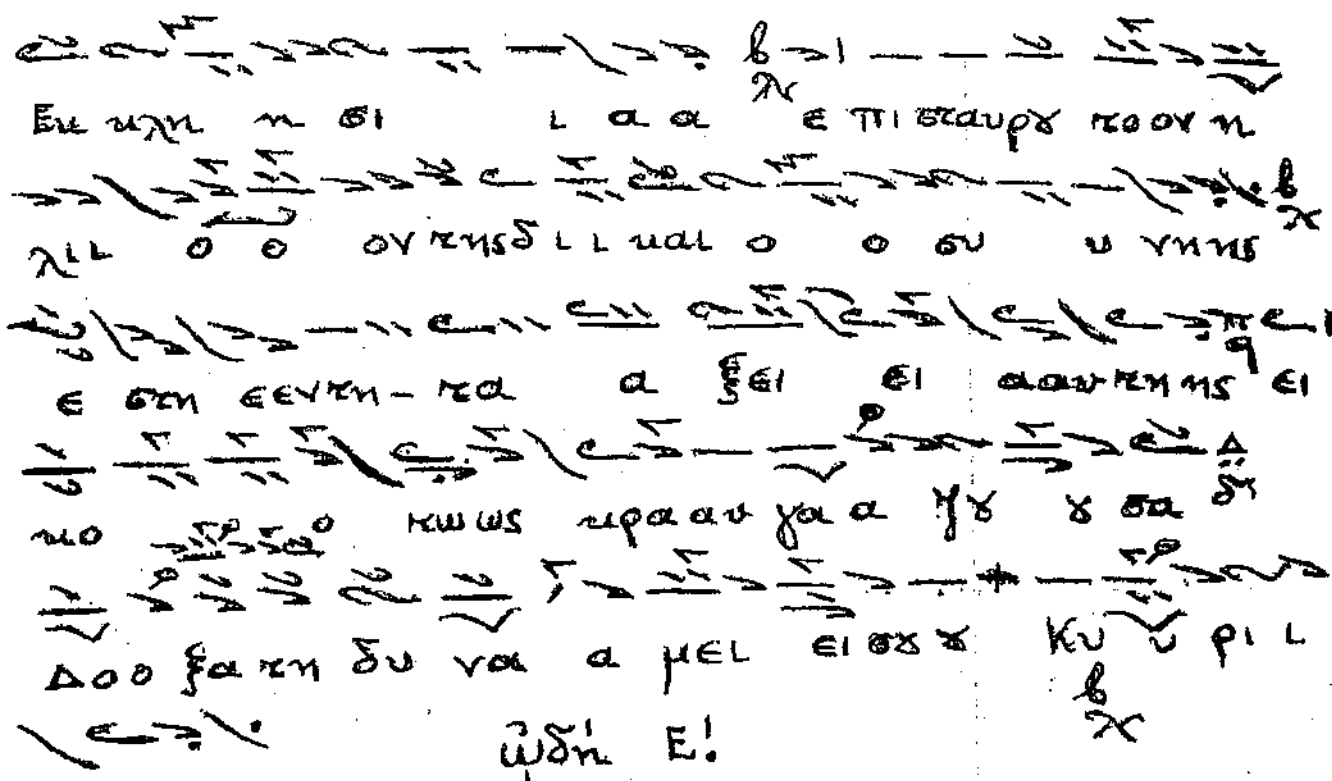 Εκ κλη η σι ι α α ε πι σταυρȣ το ον η
λι ι ο ο ον της δι ι και ο ο συ υ νη ης
ε στη ε εν τη - τα α ξει ει α αυ τη ης ει
κο τω ως κρα αυ γα α ζȣ ȣ σα
Δο ο ξα τη δυ να α μει ει σȣ ȣ Κυ υ ρι ι
ᾠδή Ε!